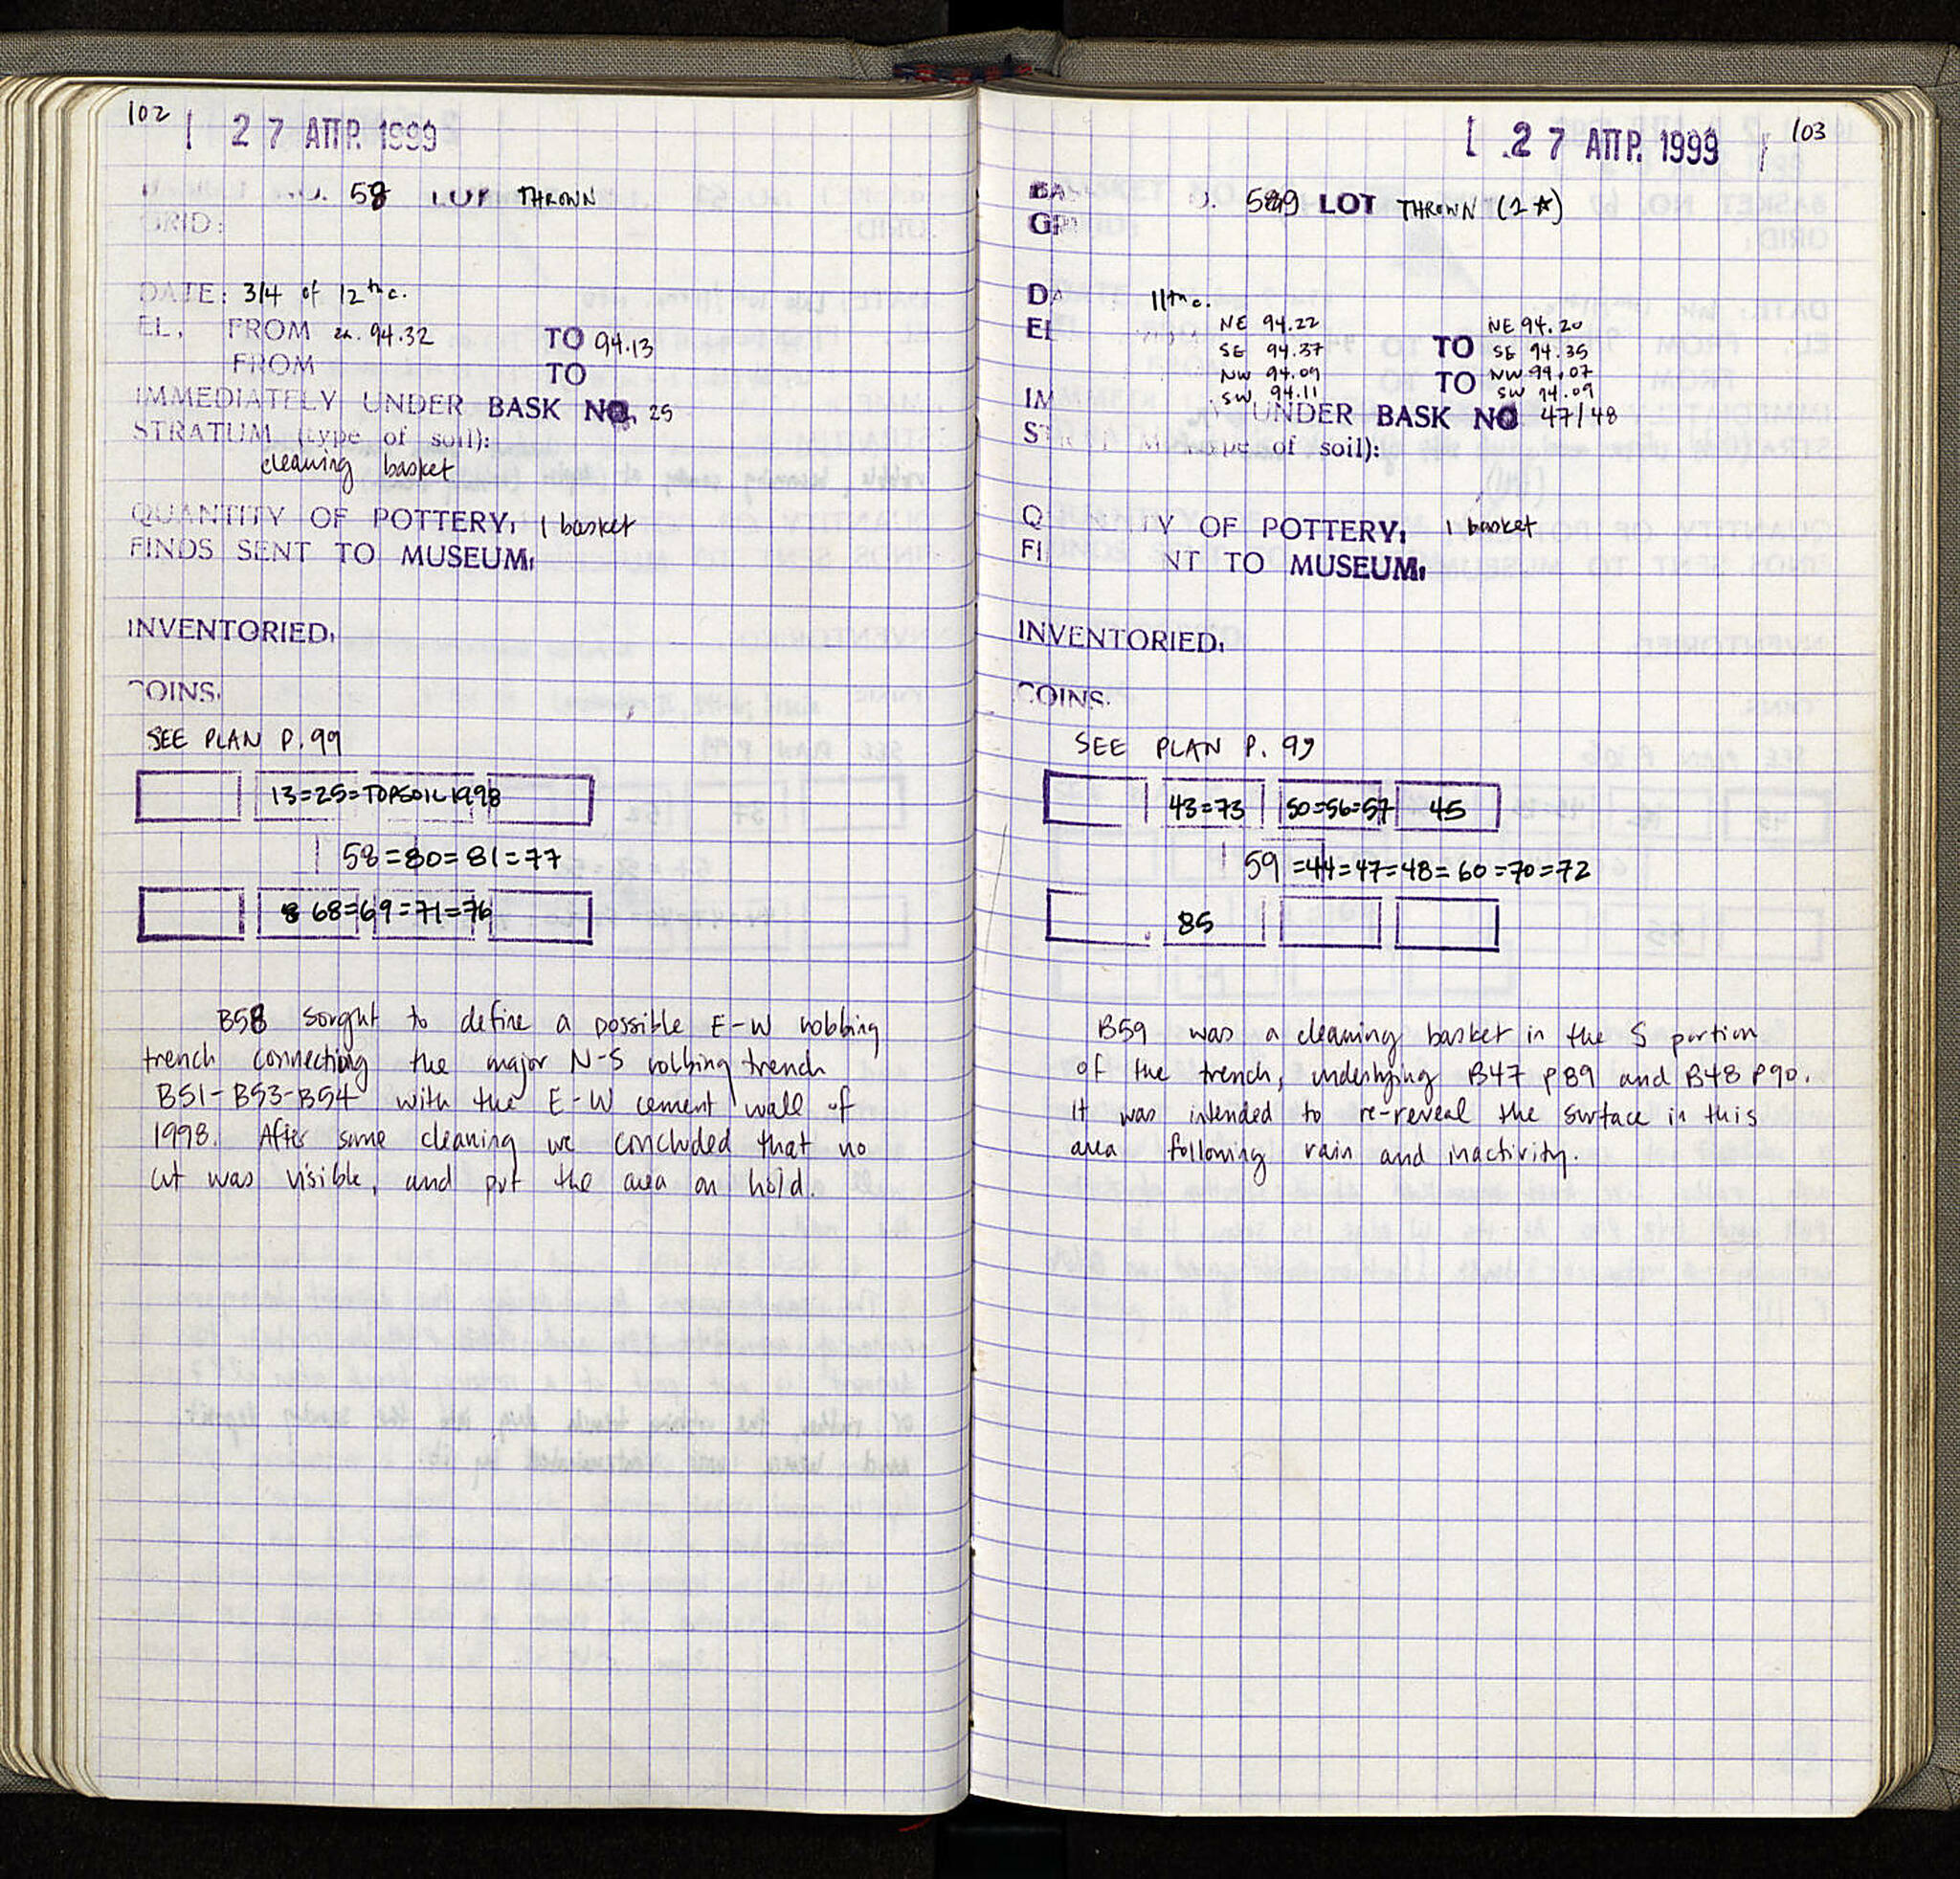 102
27 ΑΠΡ. 1999
58 LOT THROWN
GRID:
DATE: 3/4 of 12th c.
EL. FROM ca. 94.32 TO 94.13
FROM TO
IMMEDIATELY UNDER BASK NO. 25
STRATUM (type of soil):
cleaning basket
QUANTITY OF POTTERY: 1 basket
FINDS SENT TO MUSEUM:
INVENTORIED:
COINS.
SEE PLAN P. 99
13=25=TOPSOIL 1998
58=80=81=77
68=69=71=76
B58 sought to define a possible E-W robbing
trench connecting the major N-S robbing trench
B51-B53-B54 with the E-W cement wall of
1998. After some cleaning we concluded that no
cut was visible, and put the area on hold.
27 ΑΠΡ. 1999
103
BA 59 LOT THROWN (2☆)
GR
DA 11th c.
EL NE 94.22 TO NE 94.20
SE 94.37 SE 94.35
NW 94.09 TO NW 94.07
SW 94.11 SW 94.09
IM UNDER BASK NO 47/48
ST type of soil):
Q TY OF POTTERY: 1 basket
FI NT TO MUSEUM:
INVENTORIED:
COINS.
SEE PLAN P. 99
43=73 50=56=57 45
59=44=47=48=60=70=72
85
B59 was a cleaning basket in the S portion
of the trench, underlying B47 P89 and B48 P90.
It was intended to re-reveal the surface in this
area following rain and inactivity.